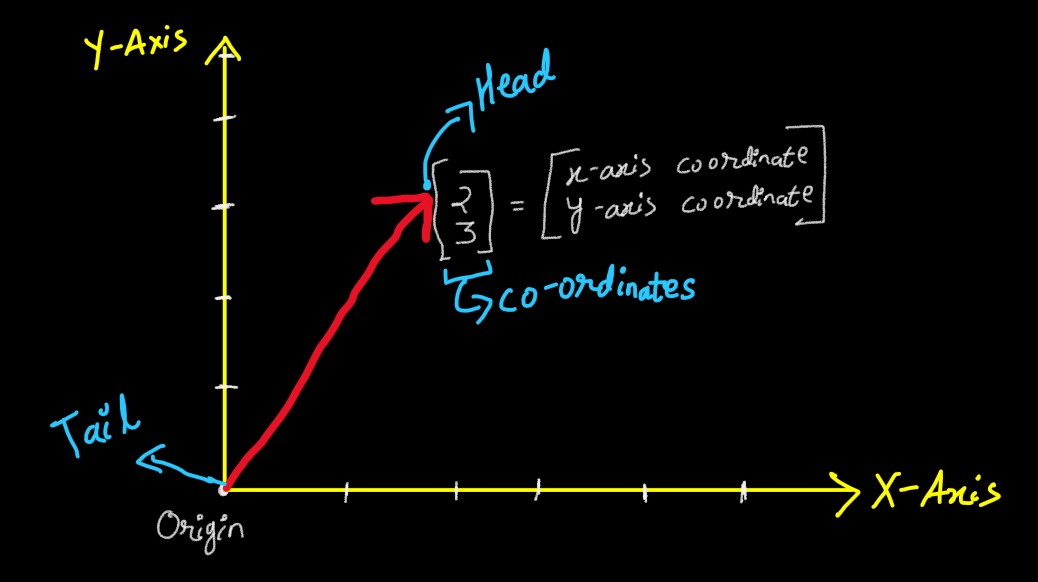 Y-Axis
Head
[2 3] = [x-axis coordinate
y-axis coordinate]
co-ordinates
Tail
X-Axis
Origin